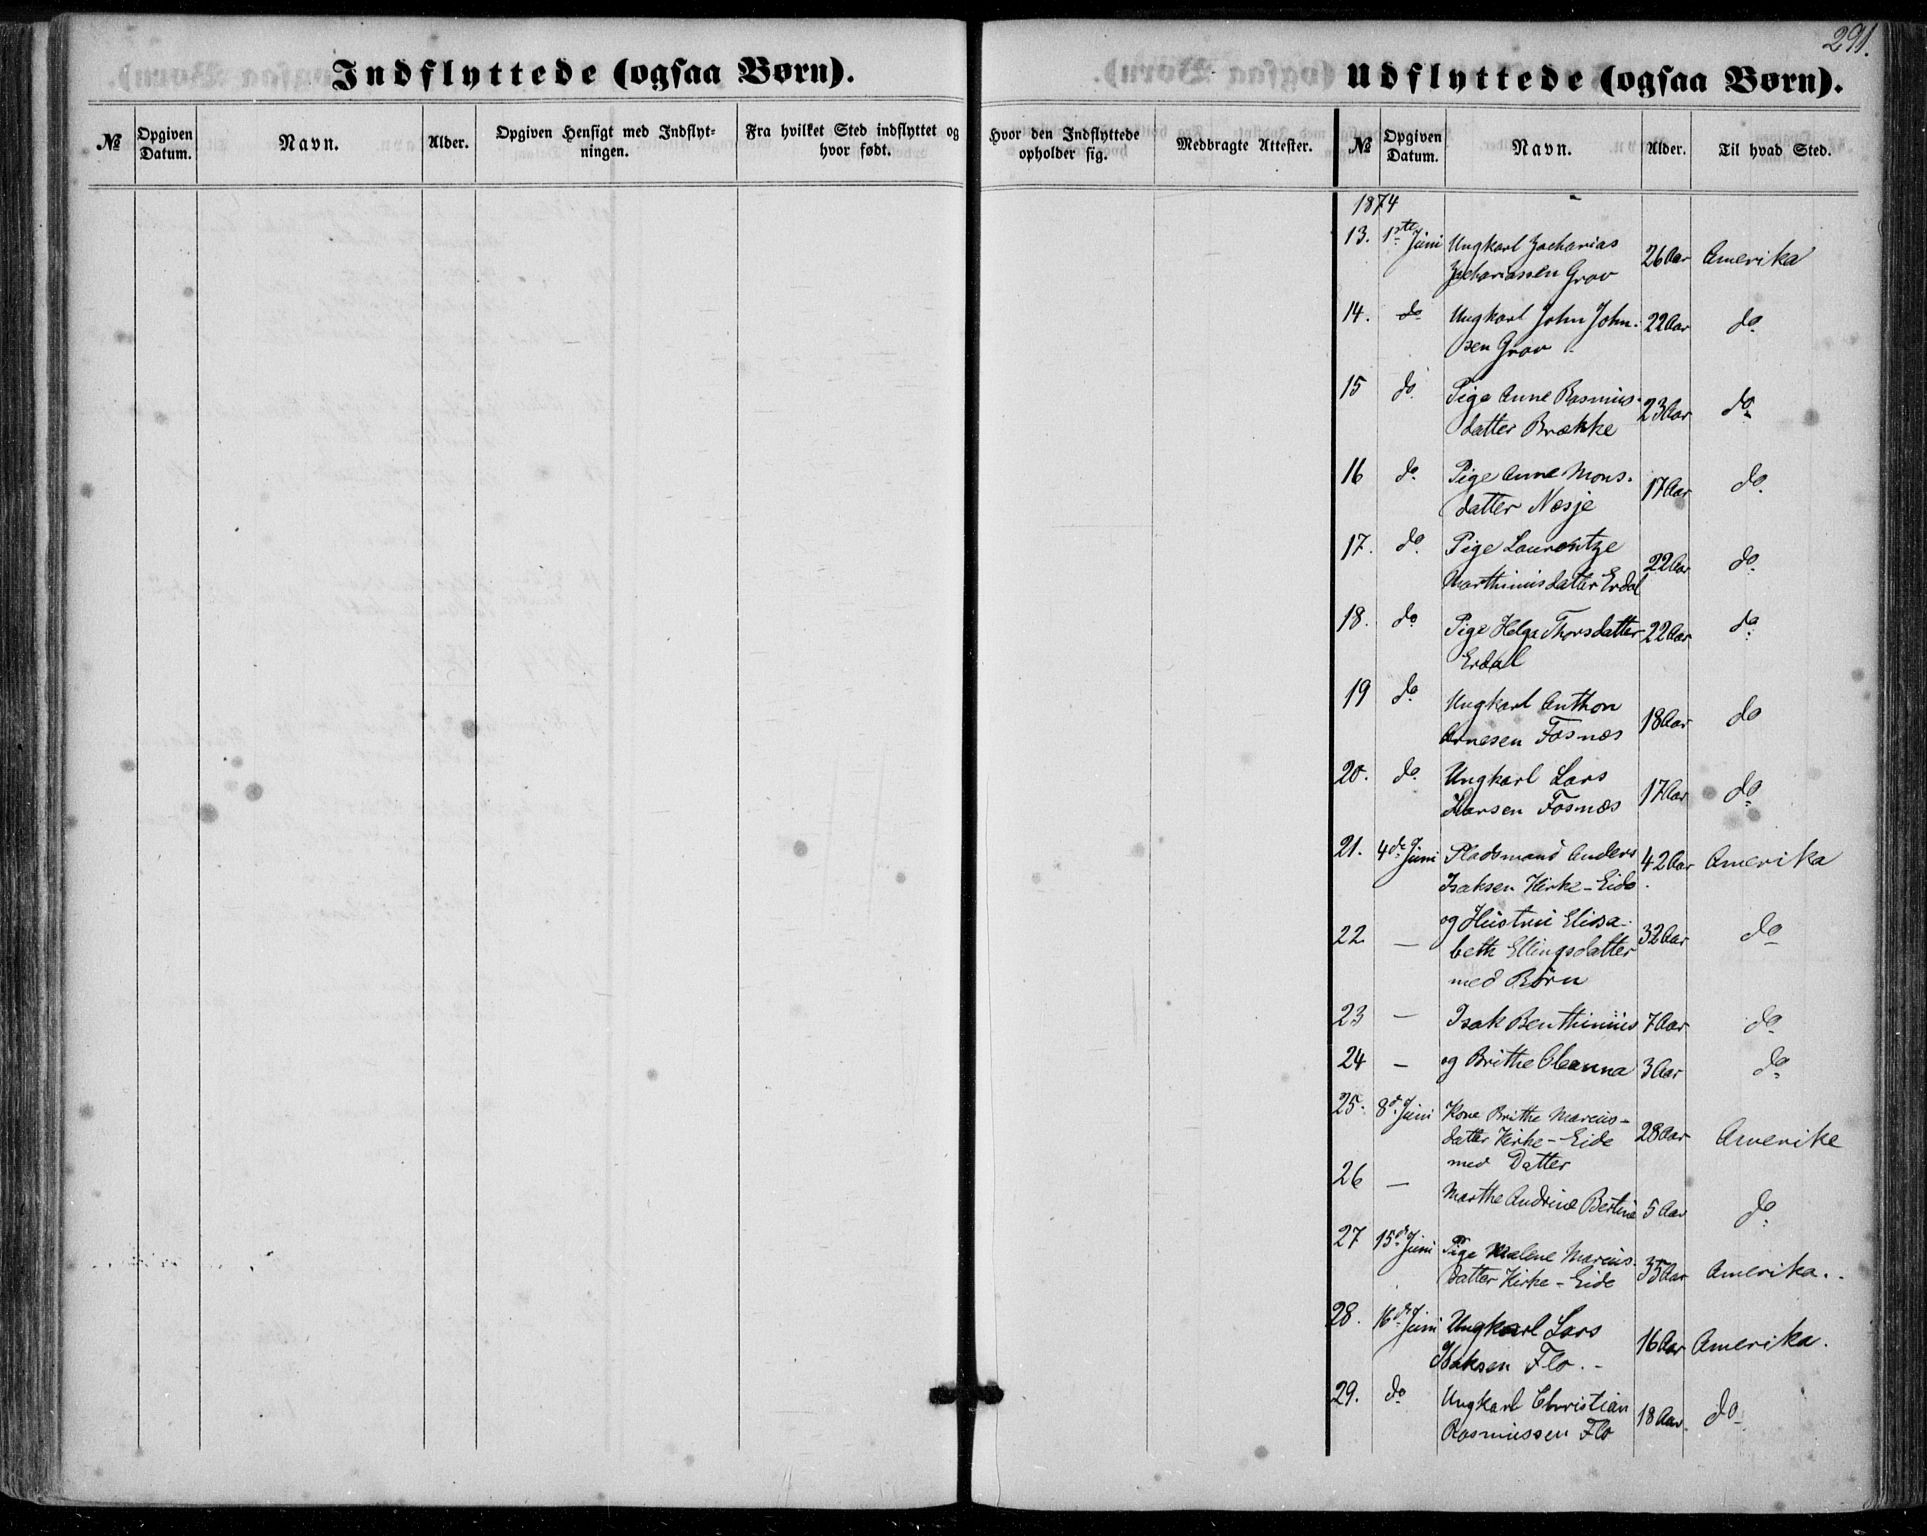 291.
Indflyttede (ogsaa Børn).
№
Opgiven Datum.
Navn.
Alder.
Opgiven Hensigt med Indflyt-
ningen.
Fra hvilket Sted indflyttet og
hvor født.
Hvor den Indflyttede
opholder sig.
Medbragte Attester.
Udflyttede (ogsaa Børn).
№
Opgiven Datum.
Navn.
Alder.
Til hvad Sted.
1874
13. 1ste Juni Ungkarl Zacharias
Zachariassen Grov 26 Aar Amerika
14. do Ungkarl John John-
sen Grov 22 Aar do
15 do Pige Anne Rasmus-
datter Brække 23 Aar do
16 do Pige Anne Mons-
datter Nesje 17 Aar do
17. do Pige Laurentze
Marthinusdatter Erdal 22 Aar do
18. do Pige Helga Thorsdatter
Erdal 22 Aar do
19 do Ungkarl Anthon
Arnesen Fosnæs 18 Aar do
20. do Ungkarl Lars
Larsen Fosnæs 17 Aar do
21. 4de Juni Pladsmand Anders
Isaksen Kirke-Eide 42 Aar Amerika
22 — og Hustru Elisa-
beth Ellingsdatter
med Børn 32 Aar do
23 — Isak Benthinius 7 Aar do
24 — og Brithe Oleanna 3 Aar do
25. 8de Juni Kone Brithe Marcus-
datter Kirke-Eide 28 Aar Amerike
med Datter
26 — Marthe Andrine Bertine 5 Aar do
27 15de Juni Pige Malene Marcus-
datter Kirke-Eide 35 Aar Amerika.
28. 16de Juni Ungkarl Lars
Isaksen Flo. 16 Aar Amerika.
29. do Ungkarl Christian
Rasmussen Flo 18 Aar. do